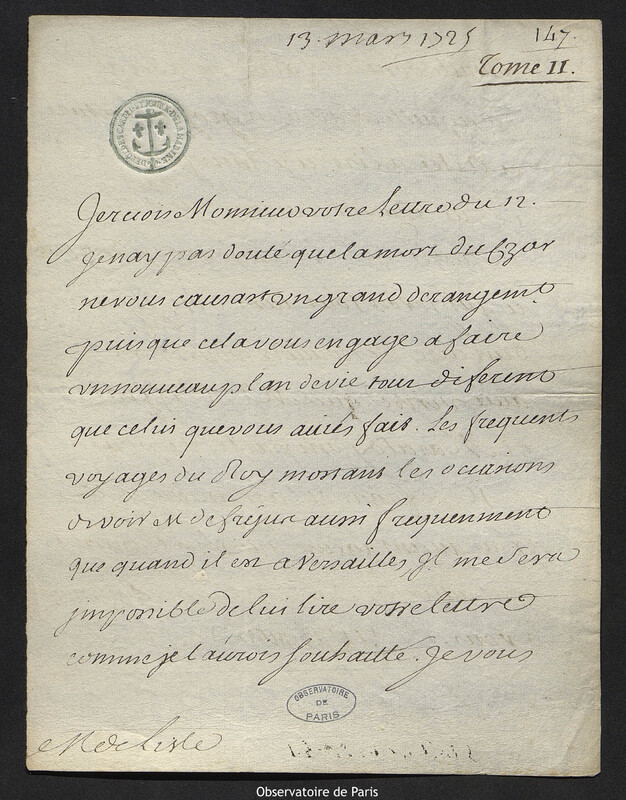 13. mars 1725
147.
Tome II.
DEPÔT DES CARTES ET JOURX DE LA MARINE
Je reçois Monsieur votre Lettre du 12.
Je nay pas douté que la mort du Czar
ne vous causast un grand derangemt.
puisque cela vous engage a faire
un nouveau plan de vie tout diferent
que celui que vous aviés fait. Les frequents
voyages du Roy mostant les occasions
de voir M de fréjus aussi frequemment
que quand il est a Versailles Il me sera
jmpossible de lui lire vostre lettre
comme je l'aurois souhaitté. Je vous
OBSERVATOIRE
DE
PARIS
M de Lisle
Observatoire de Paris